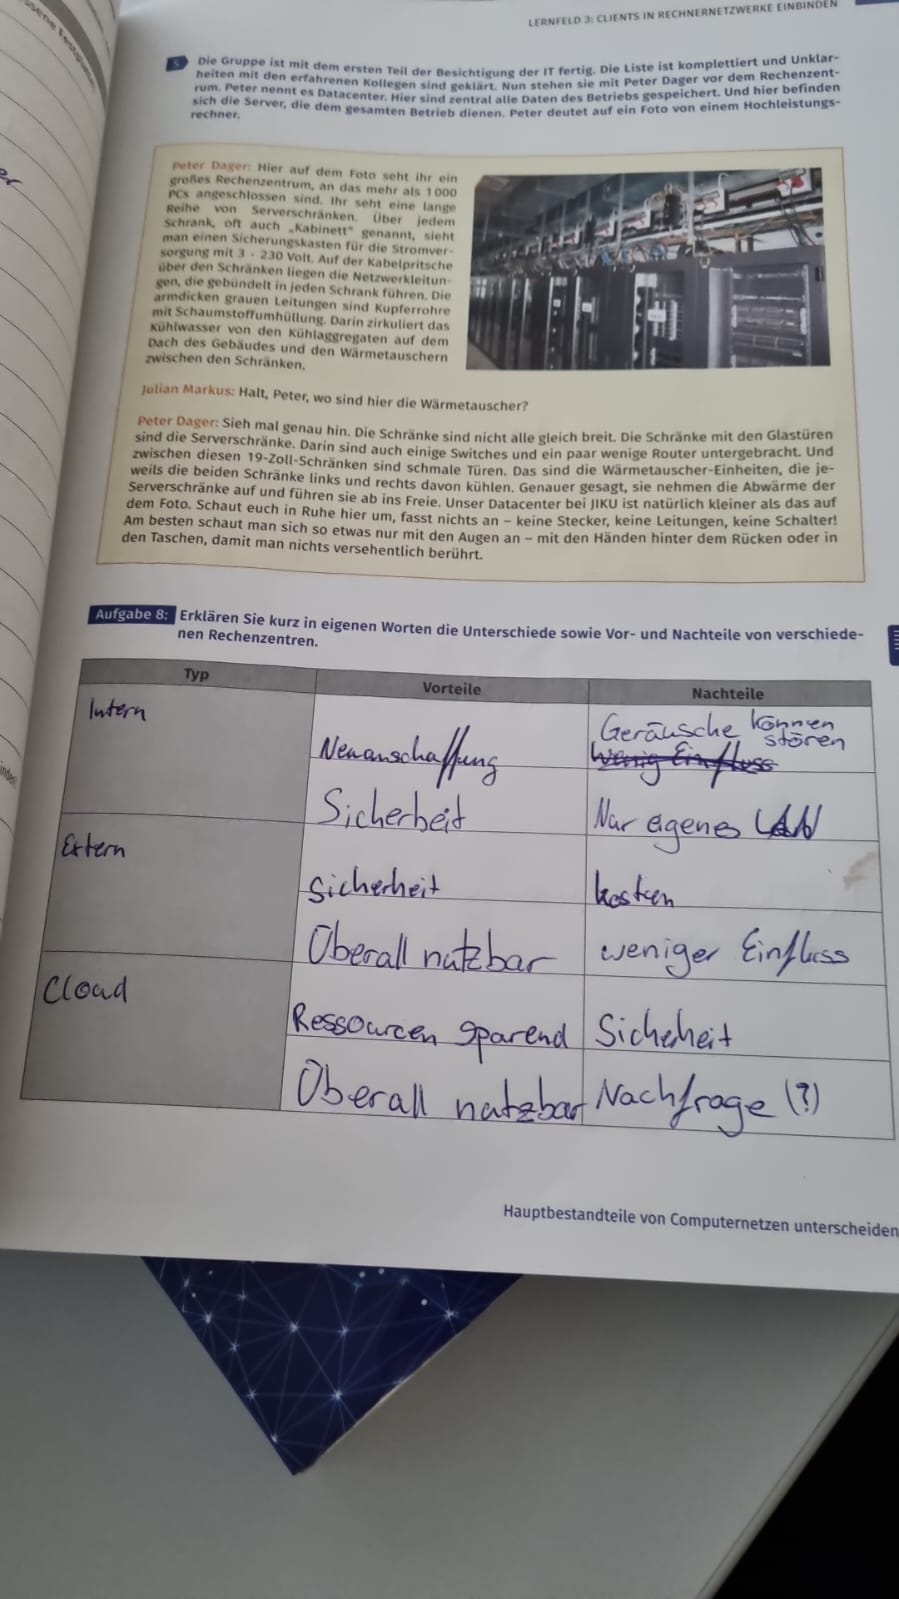 LERNFELD 3: CLIENTS IN RECHNERNETZWERKE EINBINDEN
5 Die Gruppe ist mit dem ersten Teil der Besichtigung der IT fertig. Die Liste ist komplettiert und Unklar-
heiten mit den erfahrenen Kollegen sind geklärt. Nun stehen sie mit Peter Dager vor dem Rechenzent-
rum. Peter nennt es Datacenter. Hier sind zentral alle Daten des Betriebs gespeichert. Und hier befinden
sich die Server, die dem gesamten Betrieb dienen. Peter deutet auf ein Foto von einem Hochleistungs-
rechner.
Peter Dager: Hier auf dem Foto seht ihr ein
großes Rechenzentrum, an das mehr als 1000
PCs angeschlossen sind. Ihr seht eine lange
Reihe von Serverschränken. Über jedem
Schrank, oft auch „Kabinett“ genannt, sieht
man einen Sicherungskasten für die Stromver-
sorgung mit 3 · 230 Volt. Auf der Kabelpritsche
über den Schränken liegen die Netzwerkleitun-
gen, die gebündelt in jeden Schrank führen. Die
armdicken grauen Leitungen sind Kupferrohre
mit Schaumstoffumhüllung. Darin zirkuliert das
Kühlwasser von den Kühlaggregaten auf dem
Dach des Gebäudes und den Wärmetauschern
zwischen den Schränken.
Julian Markus: Halt, Peter, wo sind hier die Wärmetauscher?
Peter Dager: Sieh mal genau hin. Die Schränke sind nicht alle gleich breit. Die Schränke mit den Glastüren
sind die Serverschränke. Darin sind auch einige Switches und ein paar wenige Router untergebracht. Und
zwischen diesen 19-Zoll-Schränken sind schmale Türen. Das sind die Wärmetauscher-Einheiten, die je-
weils die beiden Schränke links und rechts davon kühlen. Genauer gesagt, sie nehmen die Abwärme der
Serverschränke auf und führen sie ab ins Freie. Unser Datacenter bei JIKU ist natürlich kleiner als das auf
dem Foto. Schaut euch in Ruhe hier um, fasst nichts an – keine Stecker, keine Leitungen, keine Schalter!
Am besten schaut man sich so etwas nur mit den Augen an – mit den Händen hinter dem Rücken oder in
den Taschen, damit man nichts versehentlich berührt.
Aufgabe 8: Erklären Sie kurz in eigenen Worten die Unterschiede sowie Vor- und Nachteile von verschiede-
nen Rechenzentren.
Typ Vorteile Nachteile
Intern
Geräusche können
stören
Neuanschaffung Wenig Einfluss
Sicherheit Nur eigenes LAN
Extern
Sicherheit kosten
Überall nutzbar weniger Einfluss
Cloud
Ressourcen sparend Sicherheit
Überall nutzbar Nachfrage (?)
Hauptbestandteile von Computernetzen unterscheiden